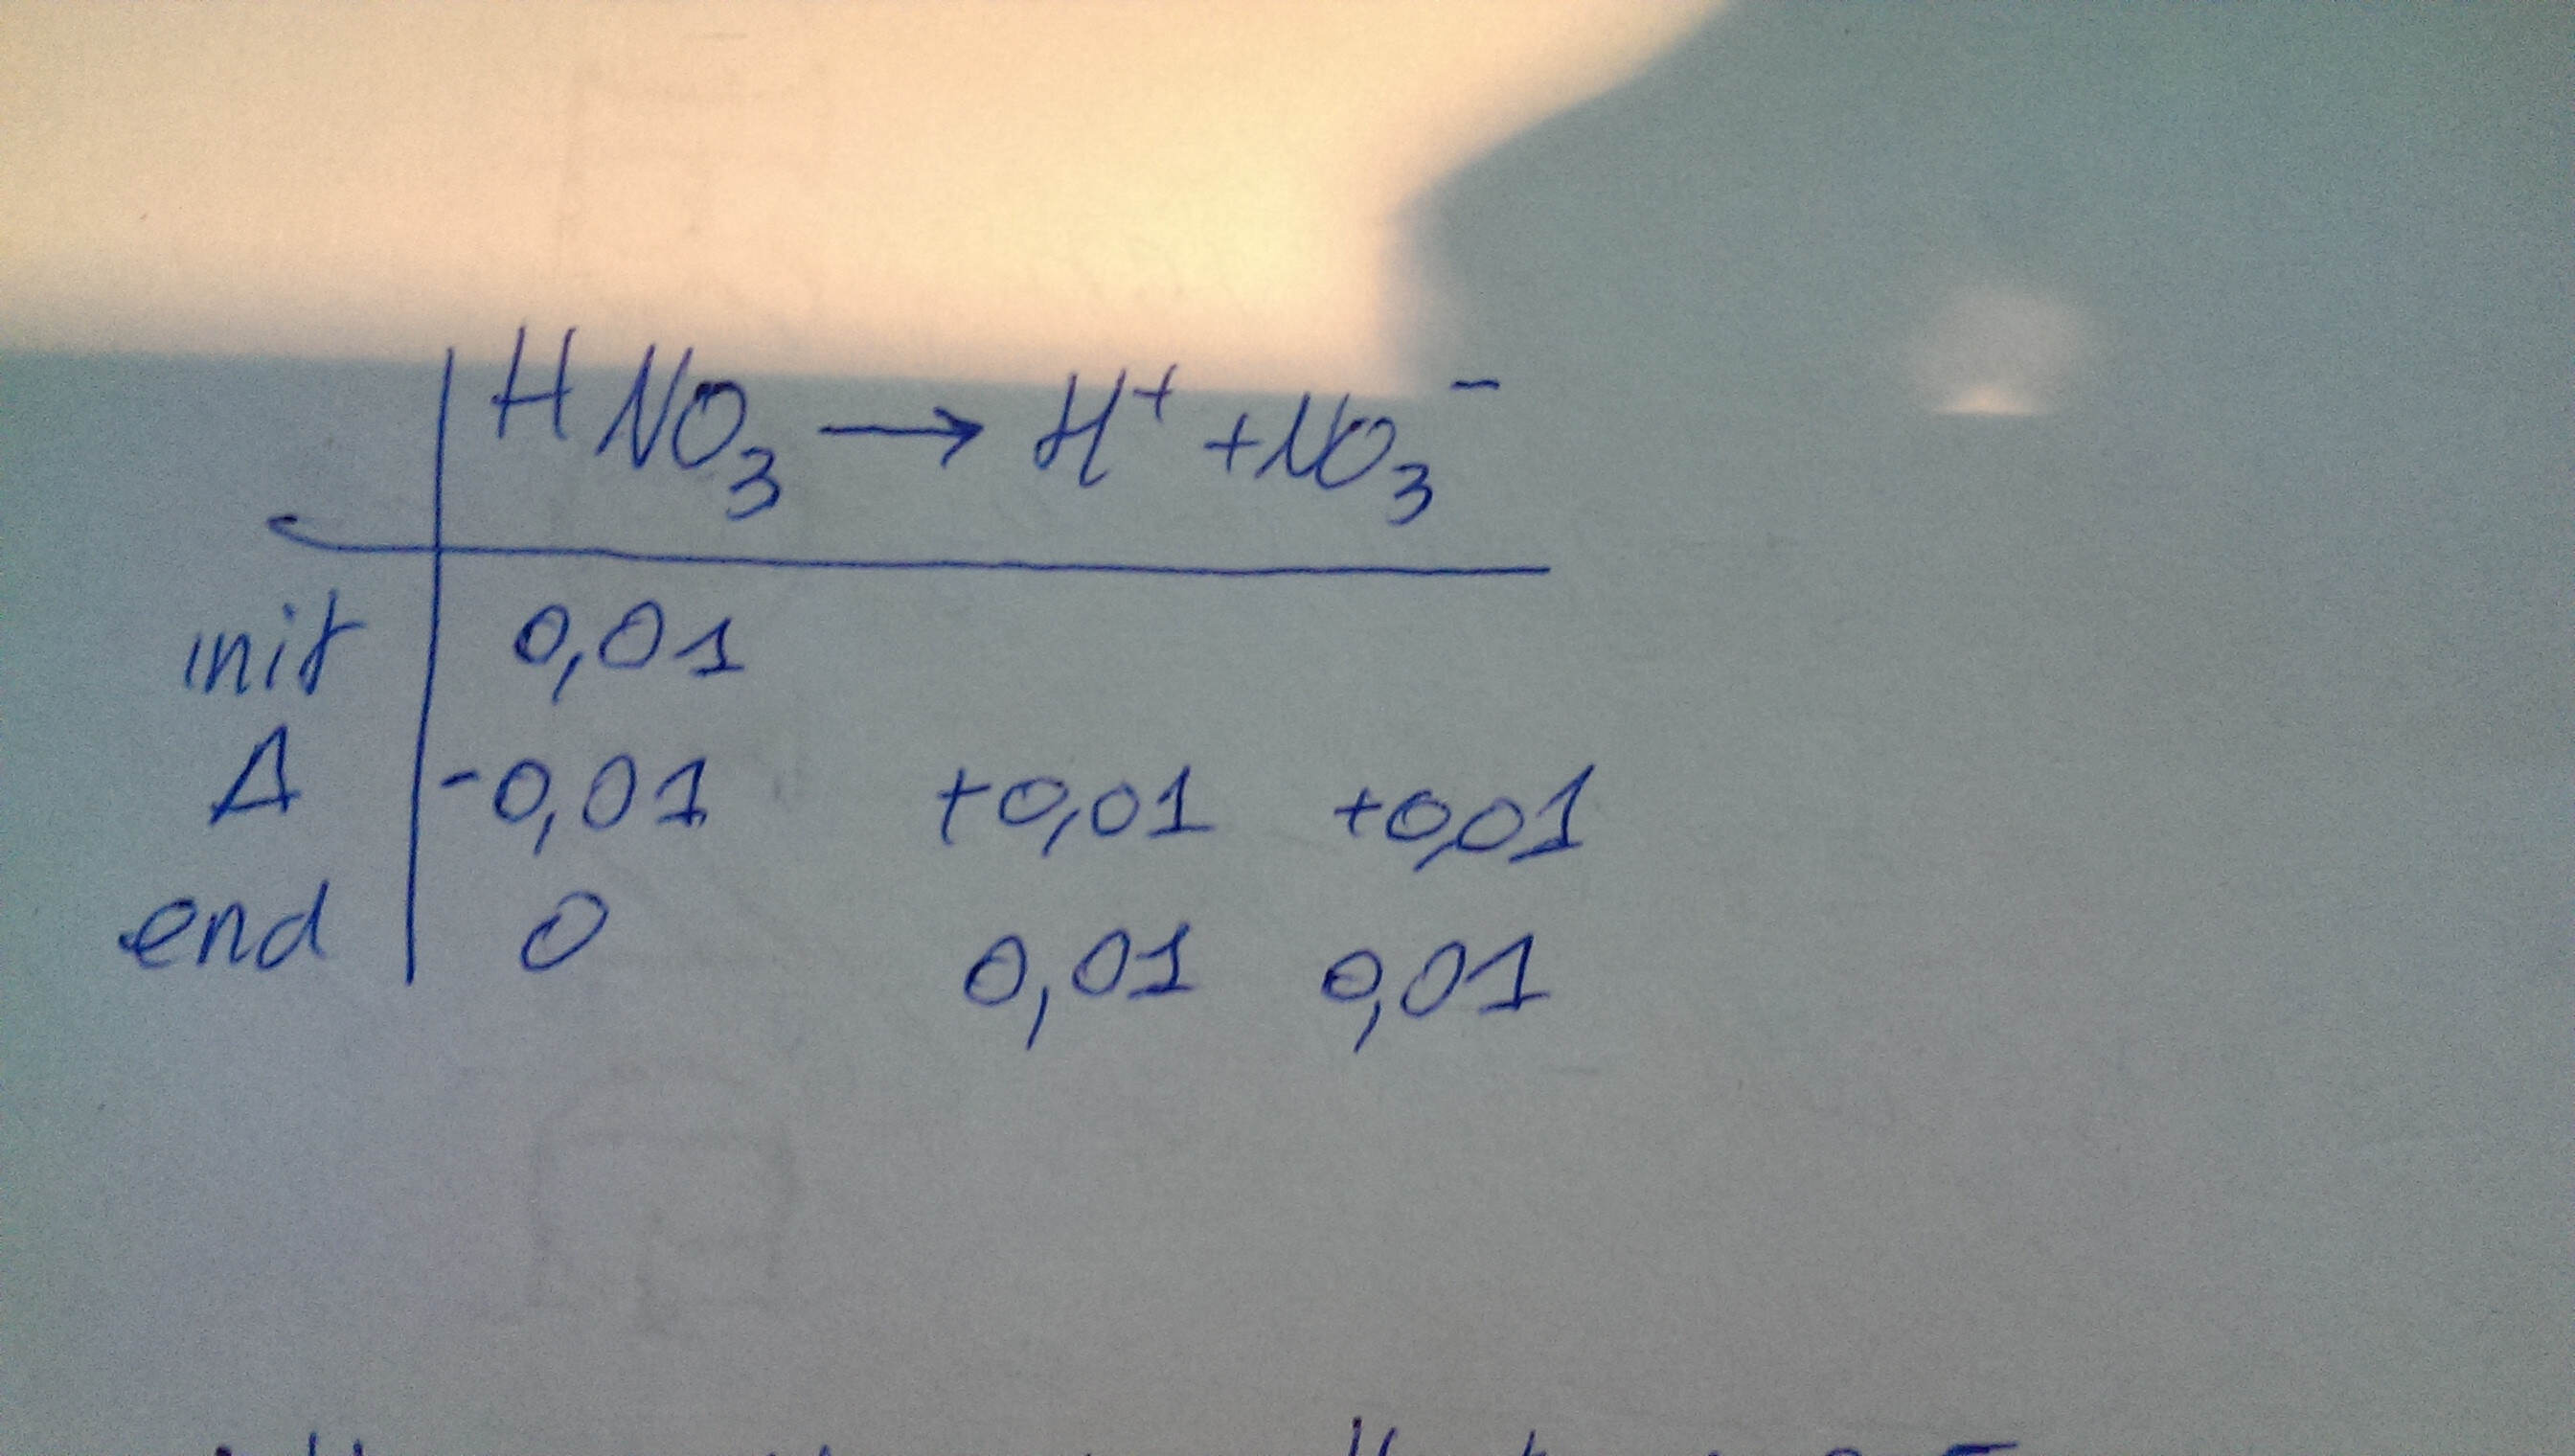 HNO₃ → H⁺ + NO₃⁻
init 0,01
Δ -0,01 +0,01 +0,01
end 0 0,01 0,01